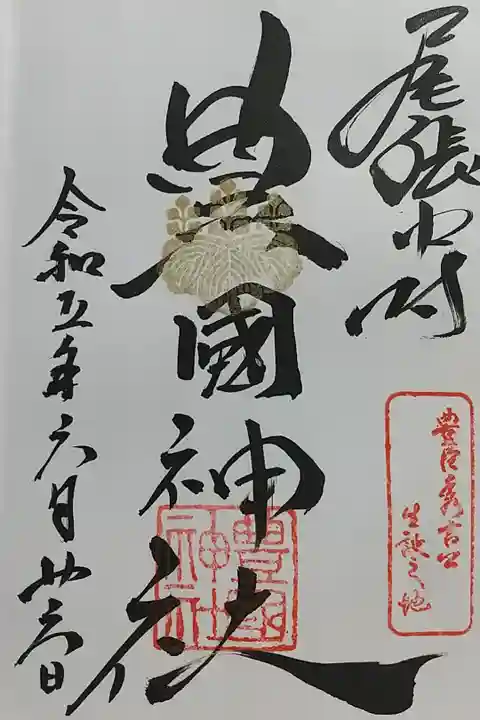 尾張中村
豊臣秀吉公
生誕之地
豊國神社
豊國神社
令和五年六月廿六日